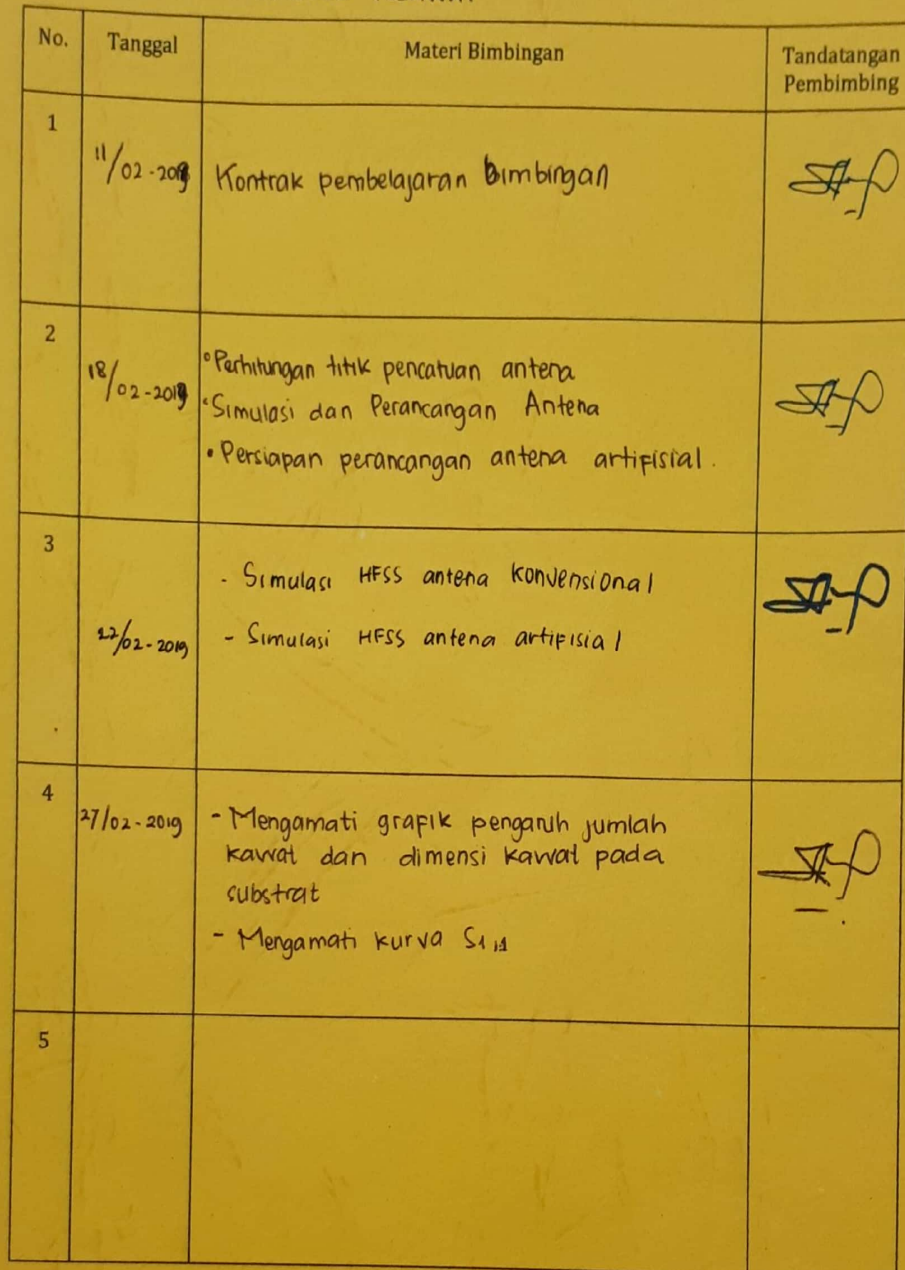 No. Tanggal Materi Bimbingan Tandatangan
Pembimbing
1
11/02-2019 Kontrak pembelajaran bimbingan
2
18/02-2019 °Perhitungan titik pencatuan antena
•Simulasi dan Perancangan Antena
• Persiapan perancangan antena artifisial.
3
- Simulasi HFSS antena konvensional
22/02-2019 - Simulasi HFSS antena artifisial
4
27/02-2019 - Mengamati grafik pengaruh jumlah
kawat dan dimensi kawat pada
substrat
- Mengamati kurva S1,1
5